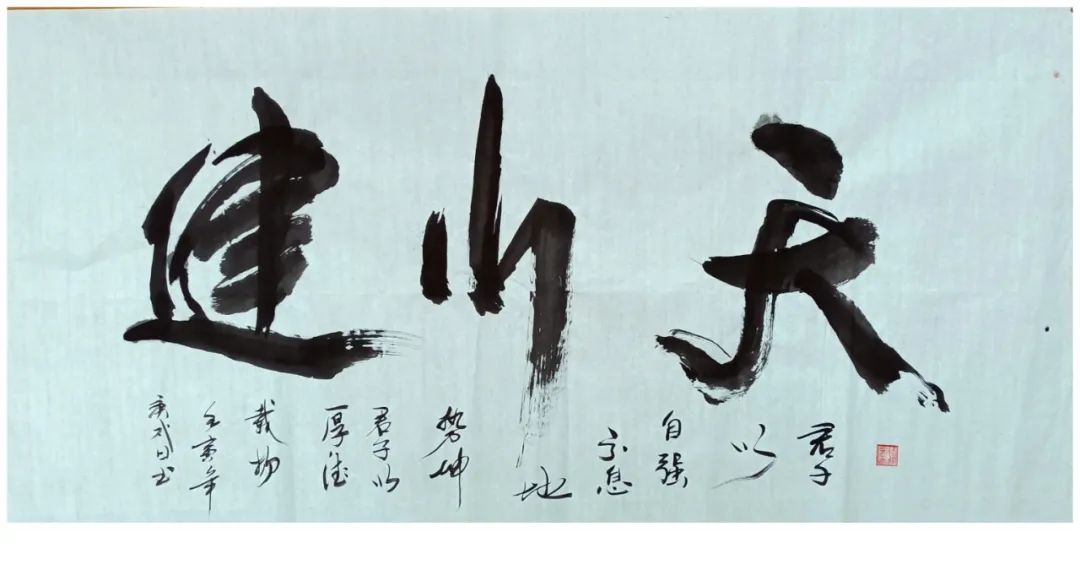 天行健
君子
以
自强
不息
地
势坤
君子以
厚德
载物
壬寅年
庚戌日书